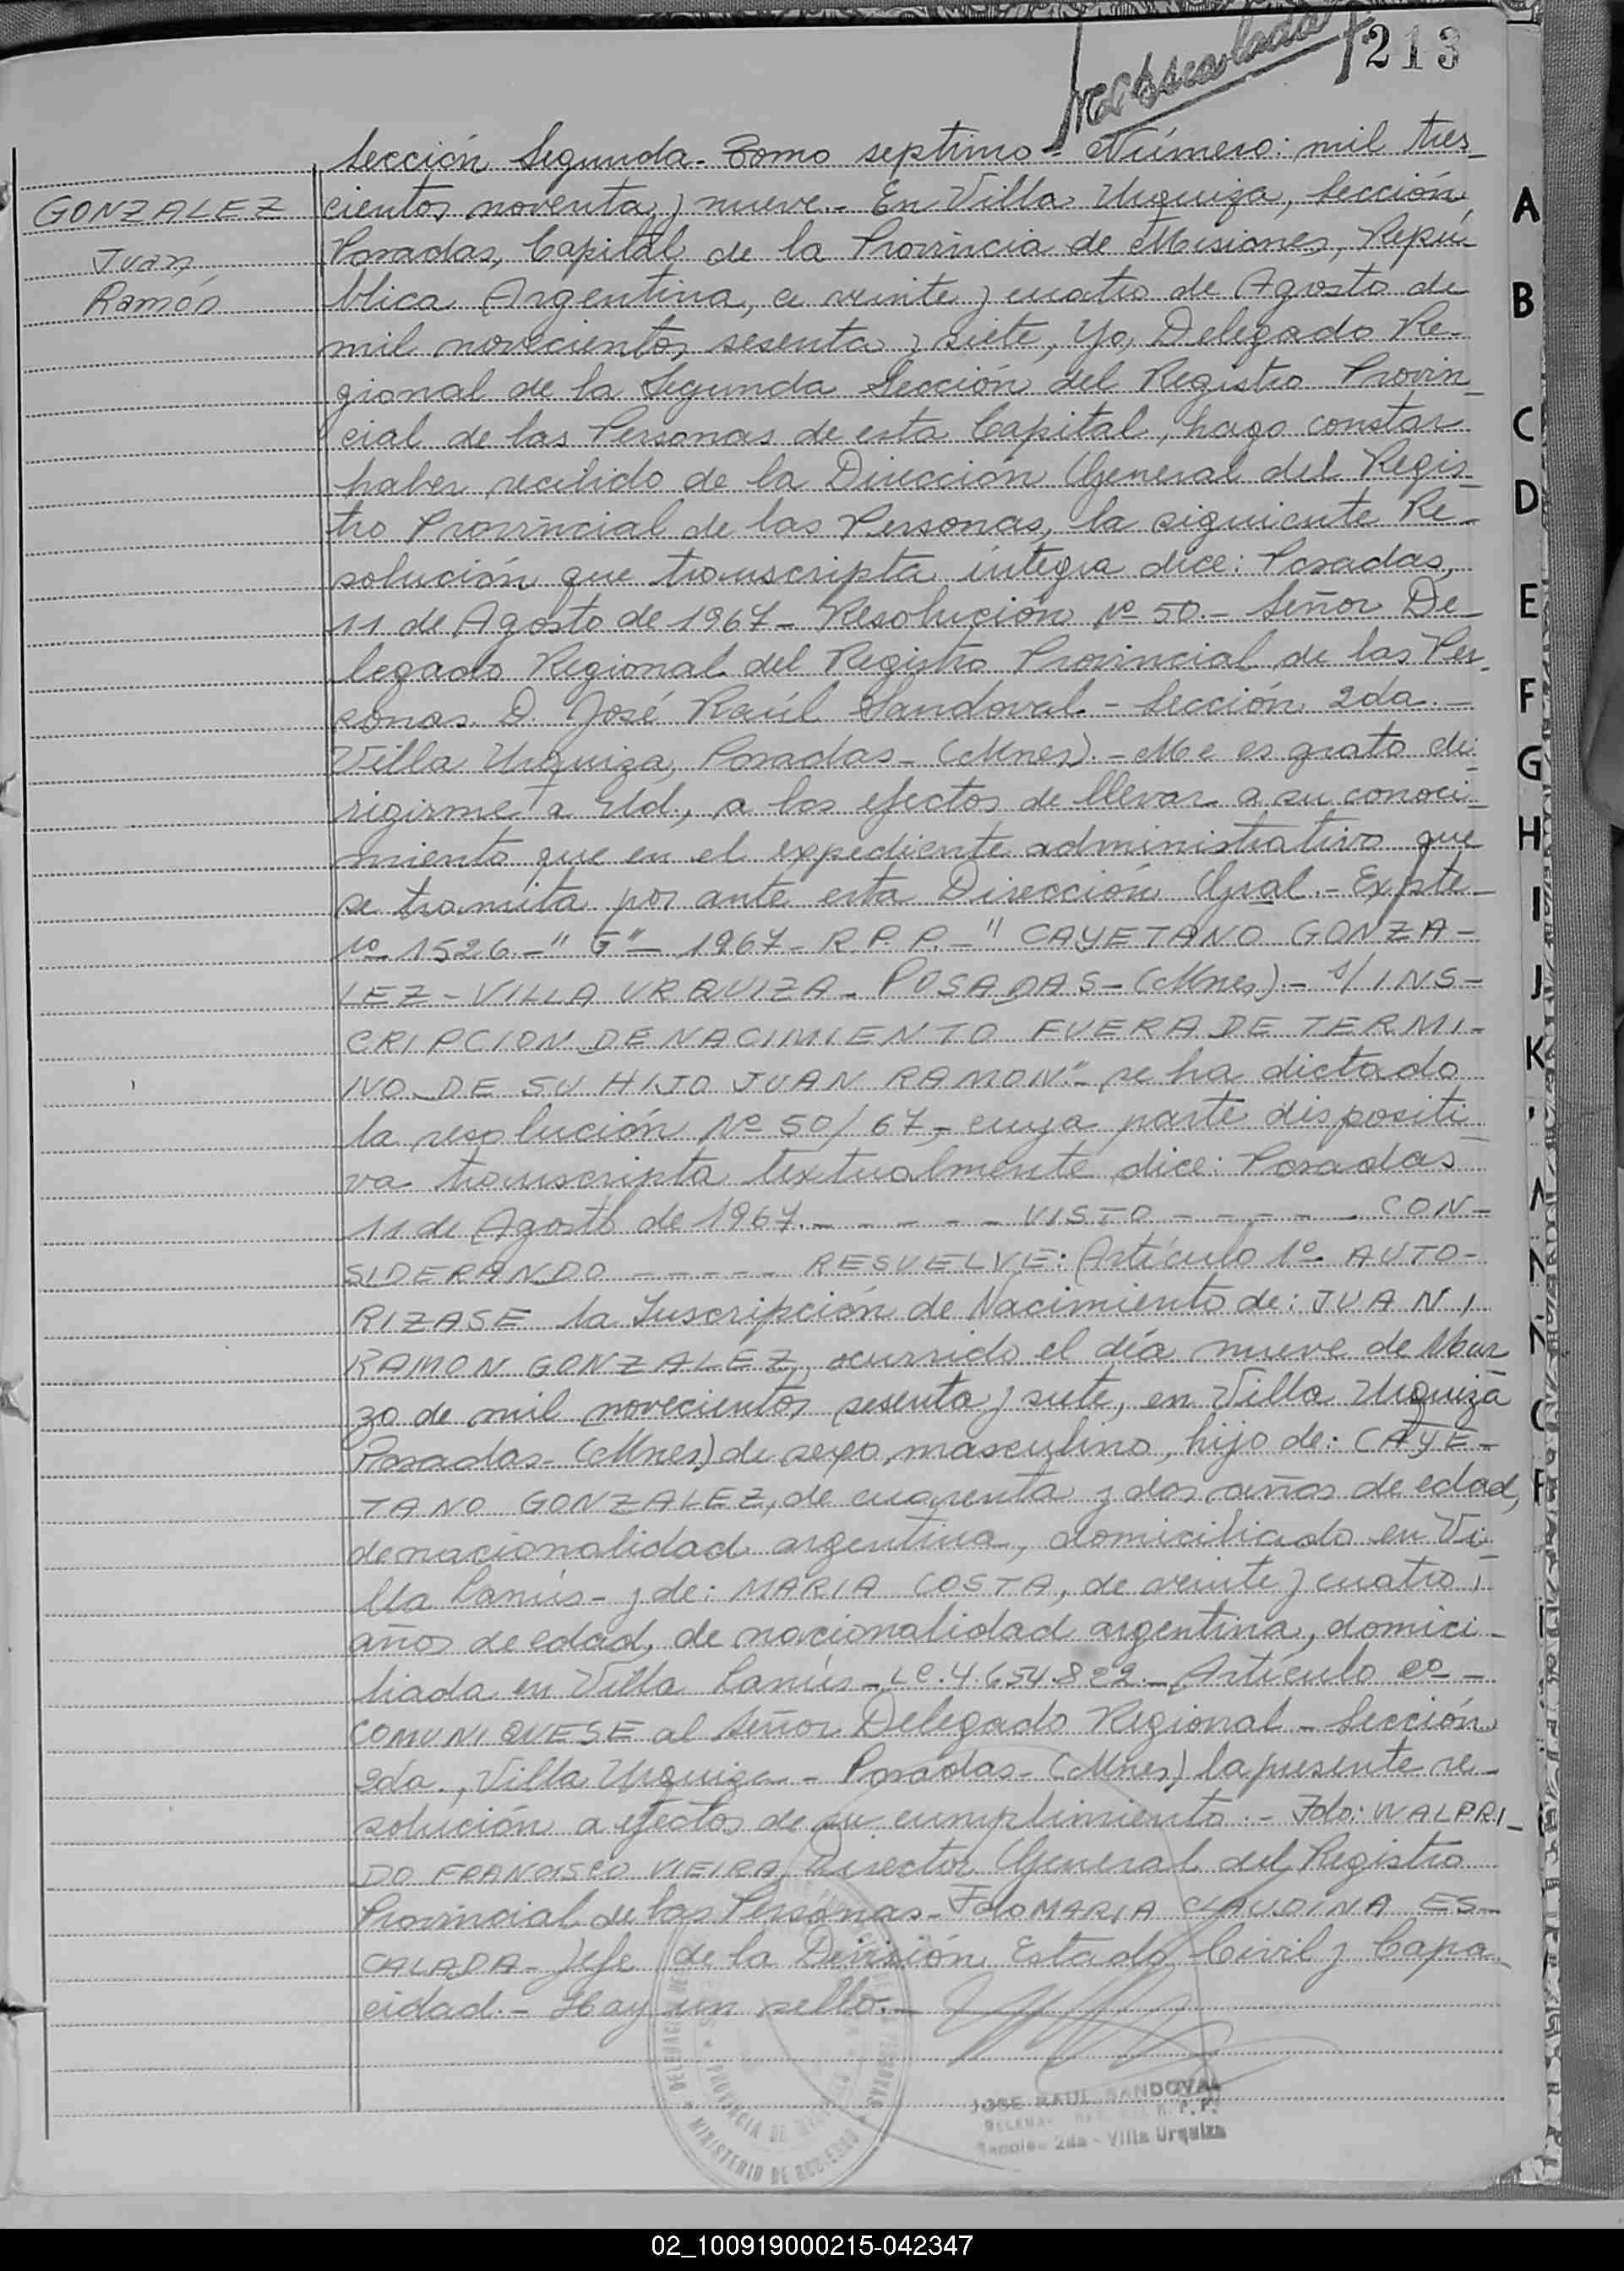 213
Sección Segunda - Tomo septimo - Número: mil tres-
GONZALEZ
Juan
Ramón
cientos noventa y nueve.- En Villa Urquiza, Sección
Posadas, Capital de la Provincia de Misiones, Repú-
blica Argentina, a veinte y cuatro de Agosto de
mil novecientos sesenta y siete, Yo, Delegado Re-
gional de la Segunda Sección del Registro Provin-
cial de las Personas de esta Capital, hago constar
haber recibido de la Dirección General del Regis-
tro Provincial de las Personas, la siguiente Re-
solución que transcripta íntegra dice: Posadas,
11 de Agosto de 1967 - Resolución Nº 50.- Señor De-
legado Regional del Registro Provincial de las Per-
sonas D. José Raúl Sandoval - Sección 2da.-
Villa Urquiza, Posadas - (Mnes).- Me es grato di-
rigirme a Ud., a los efectos de llevar a su conoci-
miento que en el expediente administrativo que
se tramita por ante esta Dirección Gral.- Expte-
Nº 1526-"G"- 1967- R.P.P.-" CAYETANO GONZA-
LEZ - VILLA URQUIZA - POSADAS - (Mnes) - s/ INS-
CRIPCION DE NACIMIENTO FUERA DE TERMI-
NO DE SU HIJO JUAN RAMON"- se ha dictado
la resolución Nº 50/67, cuya parte dispositi-
va transcripta textualmente dice: Posadas
11 de Agosto de 1967.- - - - - - VISTO - - - - - - CON-
SIDERANDO - - - - - RESUELVE: Artículo 1º AUTO-
RIZASE la Inscripción de Nacimiento de: JUAN
RAMON GONZALEZ, ocurrido el día nueve de Mar
zo de mil novecientos sesenta y siete, en Villa Urquiza
Posadas - (Mnes) de sexo masculino, hijo de: CAYE-
TANO GONZALEZ, de cuarenta y dos años de edad,
de nacionalidad argentina, domiciliado en Vi-
lla Lanús - y de: MARIA COSTA, de veinte y cuatro
años de edad, de nacionalidad argentina, domici-
liada en Villa Lanús - LC. 4.654.822.- Artículo 2º -
COMUNIQUESE al Señor Delegado Regional - Sección
2da., Villa Urquiza - Posadas - (Mnes) la presente re-
solución a efectos de su cumplimiento.- Fdo: WALFRI-
DO FRANCISCO VIEIRA, Director General del Registro
Provincial de las Personas - Fdo MARIA CLAUDINA ES-
CALADA - Jefe de la División Estado Civil y Capa-
cidad.- Hay un sello.-
JOSE RAUL SANDOVAL
Sección 2da - Villa Urquiza
PROVINCIA DE
MINISTERIO DE GOBIERNO
A
B
C
D
E
F
G
H
I
J
K
02_100919000215-042347